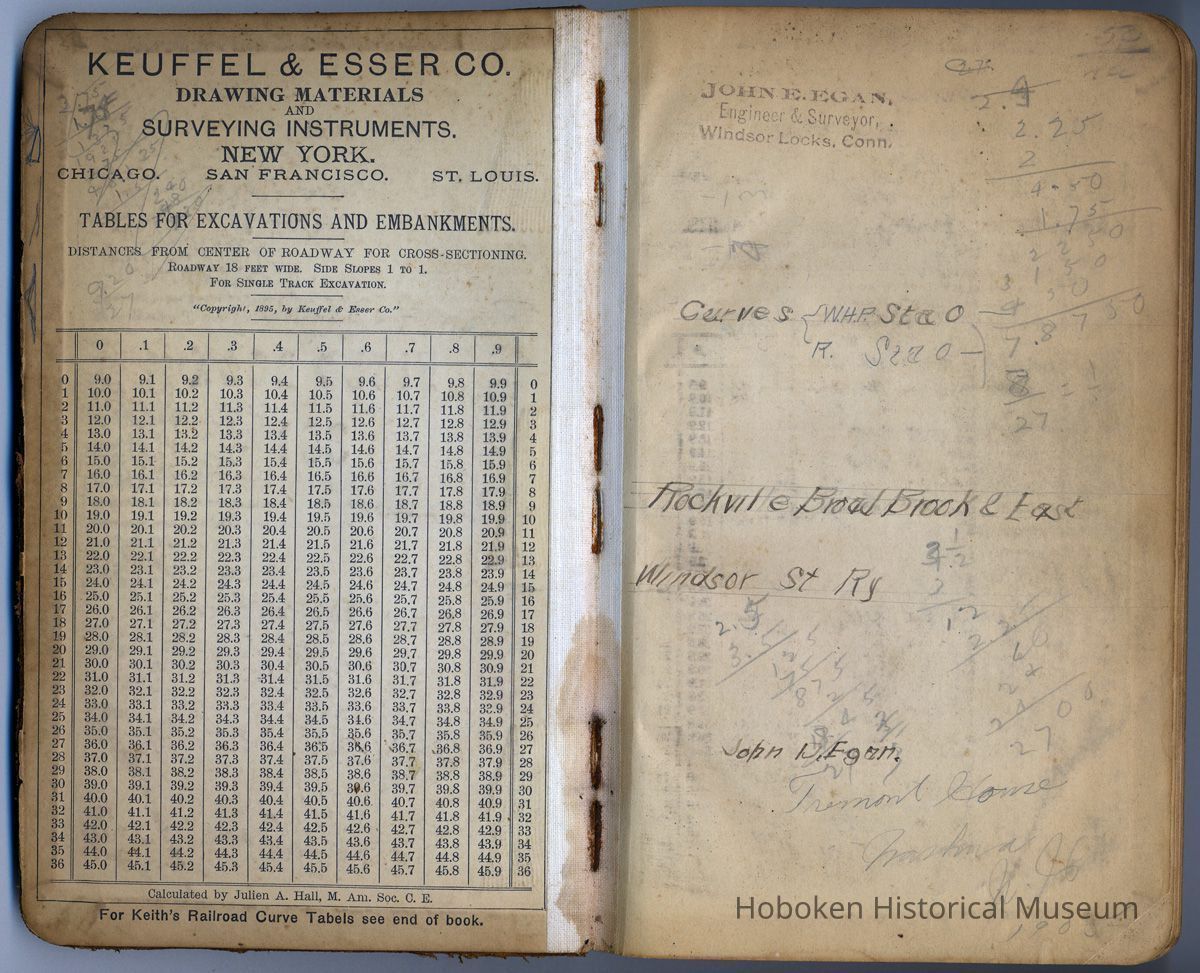 KEUFFEL & ESSER CO.
DRAWING MATERIALS
AND
SURVEYING INSTRUMENTS.
NEW YORK.
CHICAGO. SAN FRANCISCO. ST. LOUIS.
TABLES FOR EXCAVATIONS AND EMBANKMENTS.
DISTANCES FROM CENTER OF ROADWAY FOR CROSS-SECTIONING.
ROADWAY 18 FEET WIDE. SIDE SLOPES 1 TO 1.
FOR SINGLE TRACK EXCAVATION.
"Copyright, 1895, by Keuffel & Esser Co."
0 .1 .2 .3 .4 .5 .6 .7 .8 .9
0 9.0 9.1 9.2 9.3 9.4 9.5 9.6 9.7 9.8 9.9 0
1 10.0 10.1 10.2 10.3 10.4 10.5 10.6 10.7 10.8 10.9 1
2 11.0 11.1 11.2 11.3 11.4 11.5 11.6 11.7 11.8 11.9 2
3 12.0 12.1 12.2 12.3 12.4 12.5 12.6 12.7 12.8 12.9 3
4 13.0 13.1 13.2 13.3 13.4 13.5 13.6 13.7 13.8 13.9 4
5 14.0 14.1 14.2 14.3 14.4 14.5 14.6 14.7 14.8 14.9 5
6 15.0 15.1 15.2 15.3 15.4 15.5 15.6 15.7 15.8 15.9 6
7 16.0 16.1 16.2 16.3 16.4 16.5 16.6 16.7 16.8 16.9 7
8 17.0 17.1 17.2 17.3 17.4 17.5 17.6 17.7 17.8 17.9 8
9 18.0 18.1 18.2 18.3 18.4 18.5 18.6 18.7 18.8 18.9 9
10 19.0 19.1 19.2 19.3 19.4 19.5 19.6 19.7 19.8 19.9 10
11 20.0 20.1 20.2 20.3 20.4 20.5 20.6 20.7 20.8 20.9 11
12 21.0 21.1 21.2 21.3 21.4 21.5 21.6 21.7 21.8 21.9 12
13 22.0 22.1 22.2 22.3 22.4 22.5 22.6 22.7 22.8 22.9 13
14 23.0 23.1 23.2 23.3 23.4 23.5 23.6 23.7 23.8 23.9 14
15 24.0 24.1 24.2 24.3 24.4 24.5 24.6 24.7 24.8 24.9 15
16 25.0 25.1 25.2 25.3 25.4 25.5 25.6 25.7 25.8 25.9 16
17 26.0 26.1 26.2 26.3 26.4 26.5 26.6 26.7 26.8 26.9 17
18 27.0 27.1 27.2 27.3 27.4 27.5 27.6 27.7 27.8 27.9 18
19 28.0 28.1 28.2 28.3 28.4 28.5 28.6 28.7 28.8 28.9 19
20 29.0 29.1 29.2 29.3 29.4 29.5 29.6 29.7 29.8 29.9 20
21 30.0 30.1 30.2 30.3 30.4 30.5 30.6 30.7 30.8 30.9 21
22 31.0 31.1 31.2 31.3 31.4 31.5 31.6 31.7 31.8 31.9 22
23 32.0 32.1 32.2 32.3 32.4 32.5 32.6 32.7 32.8 32.9 23
24 33.0 33.1 33.2 33.3 33.4 33.5 33.6 33.7 33.8 33.9 24
25 34.0 34.1 34.2 34.3 34.4 34.5 34.6 34.7 34.8 34.9 25
26 35.0 35.1 35.2 35.3 35.4 35.5 35.6 35.7 35.8 35.9 26
27 36.0 36.1 36.2 36.3 36.4 36.5 36.6 36.7 36.8 36.9 27
28 37.0 37.1 37.2 37.3 37.4 37.5 37.6 37.7 37.8 37.9 28
29 38.0 38.1 38.2 38.3 38.4 38.5 38.6 38.7 38.8 38.9 29
30 39.0 39.1 39.2 39.3 39.4 39.5 39.6 39.7 39.8 39.9 30
31 40.0 40.1 40.2 40.3 40.4 40.5 40.6 40.7 40.8 40.9 31
32 41.0 41.1 41.2 41.3 41.4 41.5 41.6 41.7 41.8 41.9 32
33 42.0 42.1 42.2 42.3 42.4 42.5 42.6 42.7 42.8 42.9 33
34 43.0 43.1 43.2 43.3 43.4 43.5 43.6 43.7 43.8 43.9 34
35 44.0 44.1 44.2 44.3 44.4 44.5 44.6 44.7 44.8 44.9 35
36 45.0 45.1 45.2 45.3 45.4 45.5 45.6 45.7 45.8 45.9 36
Calculated by Julien A. Hall, M. Am. Soc. C. E.
For Keith's Railroad Curve Tabels see end of book.
JOHN E. EGAN,
Engineer & Surveyor,
Windsor Locks, Conn.
2.25
2
4.50
1.75
Curves { W.H.P. Sta 0 -
R. Sta 0 -
27
Rockville Broad Brook & East
Windsor St Ry
John D. Egan.
Tremont House
Hoboken Historical Museum